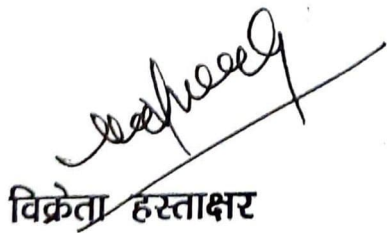 विक्रेता हस्ताक्षर